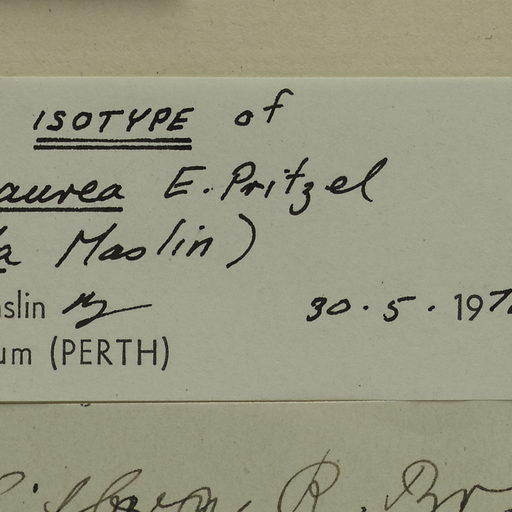 ISOTYPE of
aurea E. Pritzel
a Maslin)
slin
30.5.197
um (PERTH)
R. Br